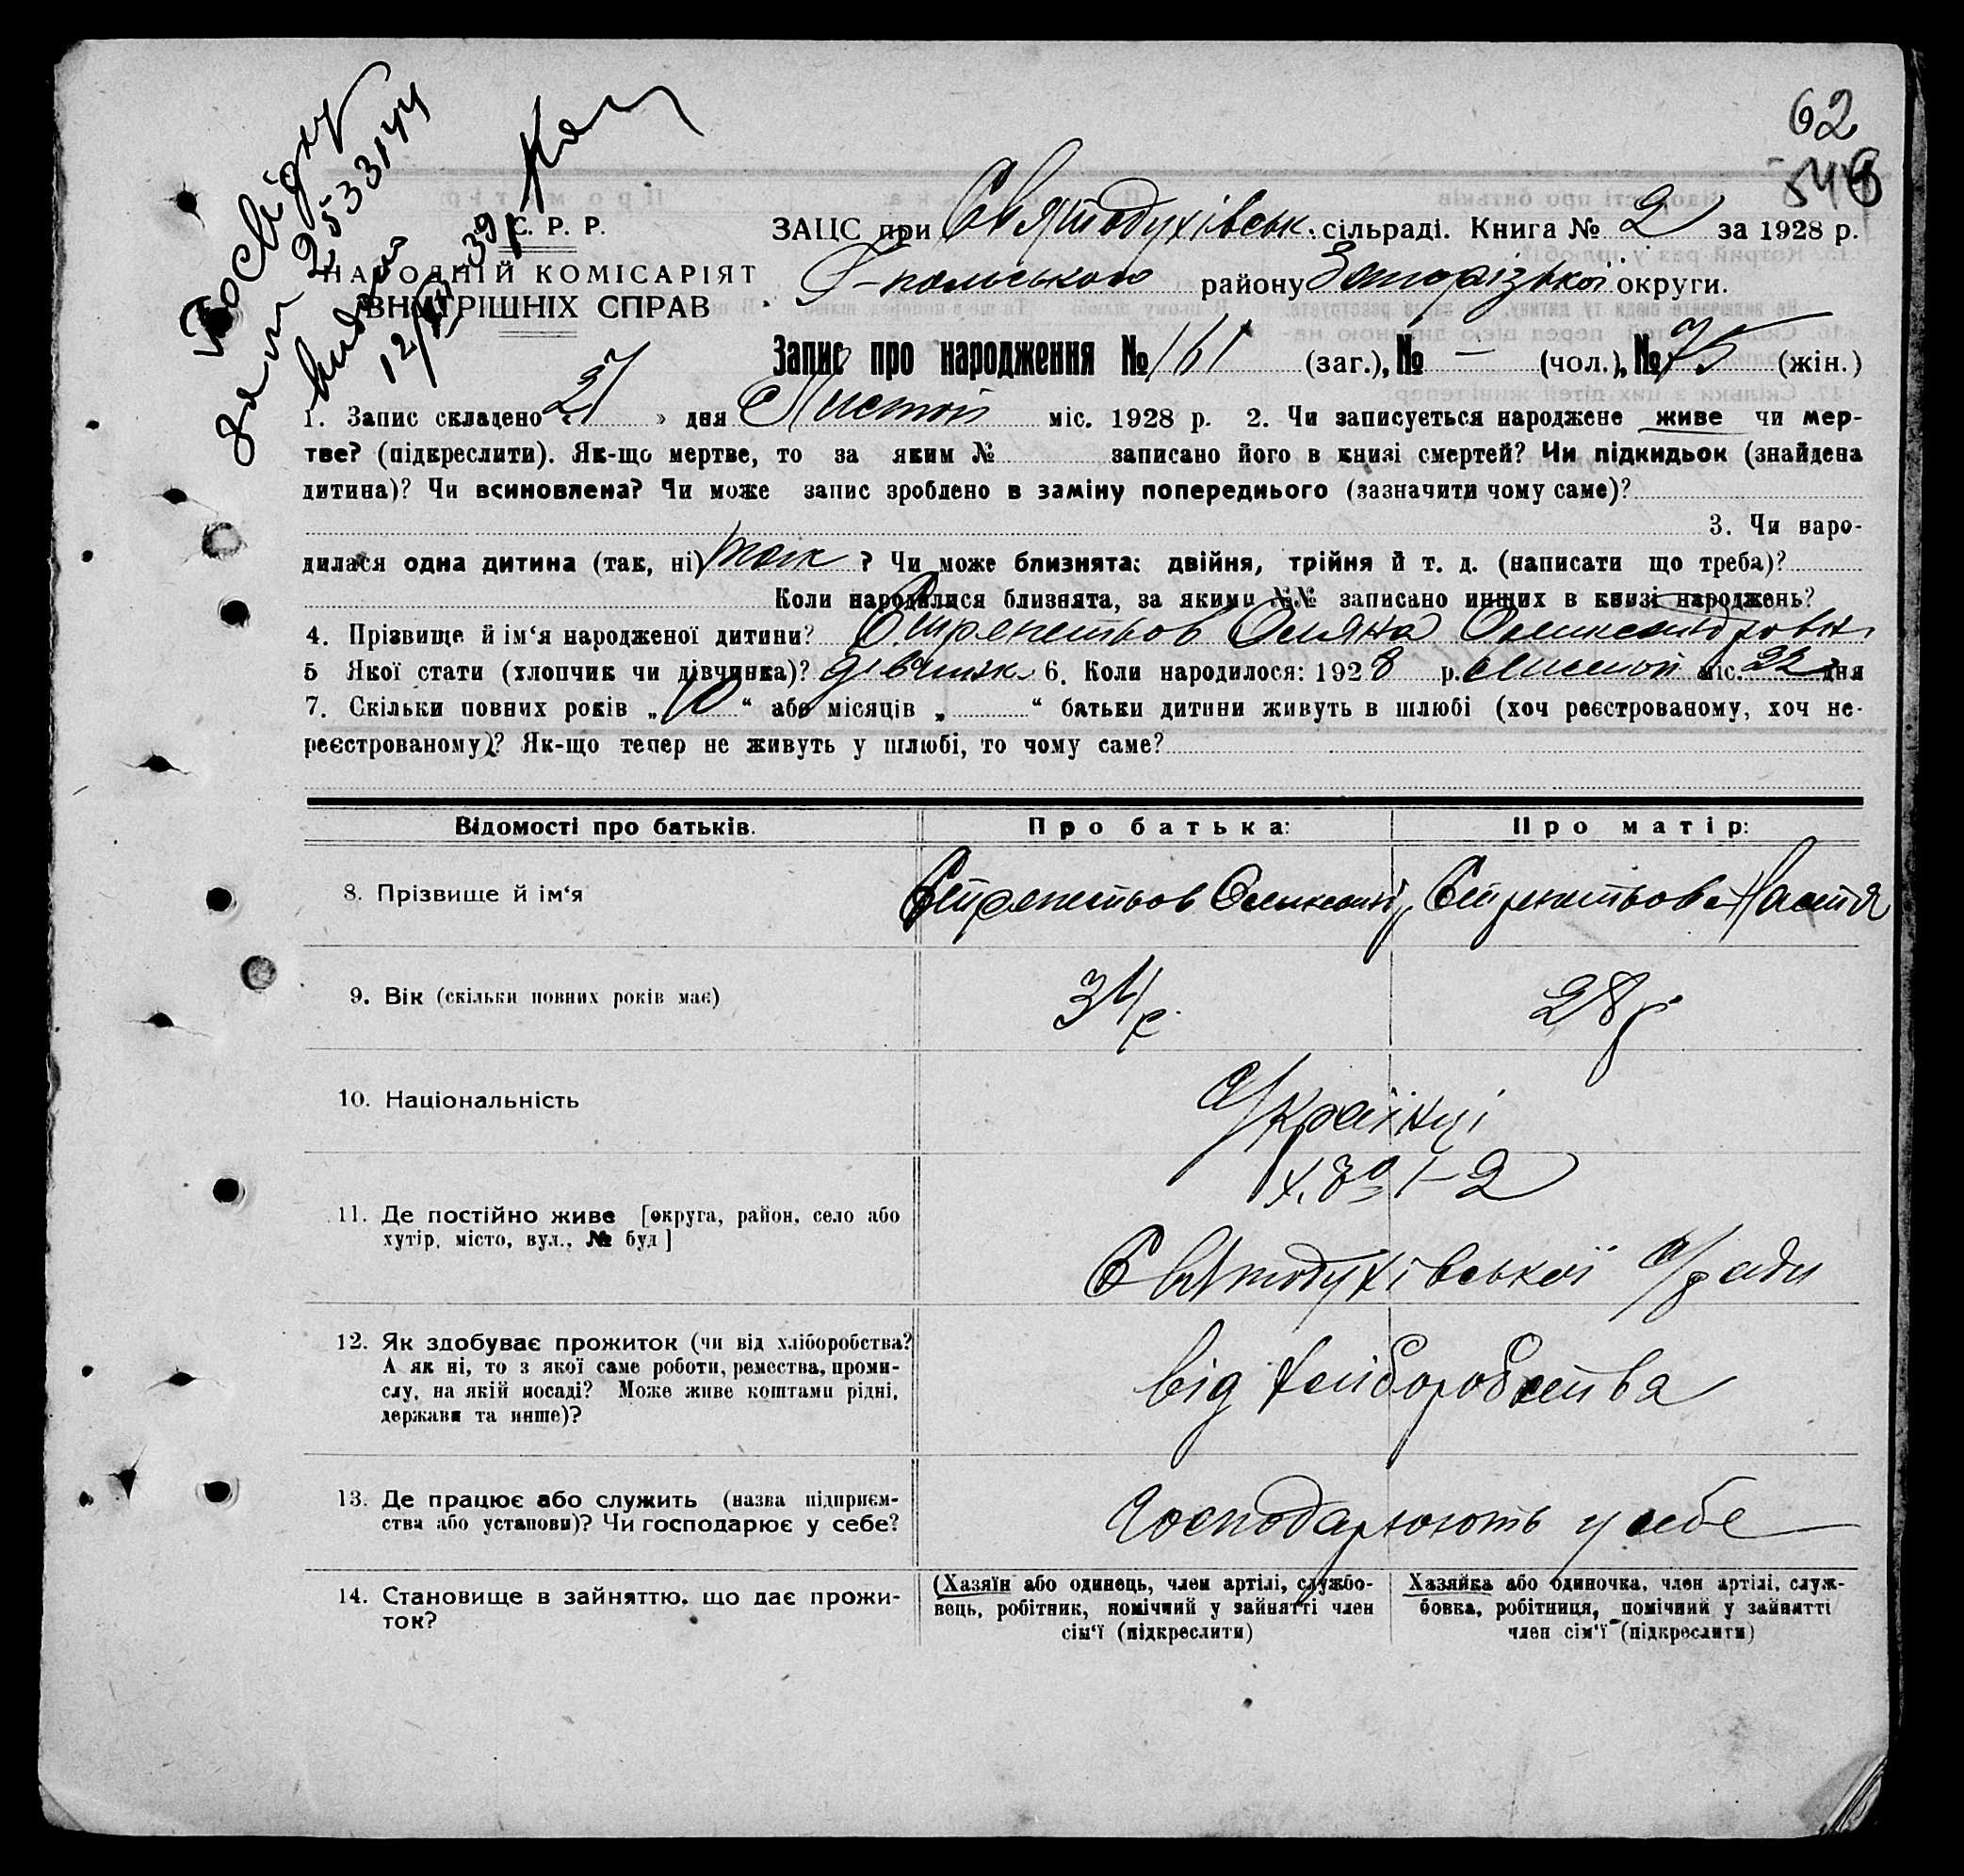 62
Посвідку
2533144
видано
С. Р. Р.
НАРОДНІЙ КОМІСАРІЯТ
ВНУТРІШНІХ СПРАВ
ЗАЦС при Святодухівськ. сільраді. Книга № 2 за 1928 р.
району Запорізької округи.
Запис про народження № 161 (заг.), № — (чол.), № 75 (жін.)
1. Запис складено 27 » дня Листоп міс. 1928 р. 2. Чи записується народжене живе чи мер-
тве? (підкреслити). Як-що мертве, то за яким № записано його в книзі смертей? Чи підкидьок (знайдена
дитина)? Чи всиновлена? Чи може запис зроблено в заміну попереднього (зазначити чому саме)?
3. Чи наро-
дилася одна дитина (так, ні) так ? Чи може близнята: двійня, трійня й т. д. (написати що треба)?
Коли народилися близнята, за якими №№ записано инших в книзі народжень?
4. Прізвище й ім‘я народженої дитини? Олександровн
5 Якої стати (хлопчик чи дівчинка)? дівчинк 6. Коли народилося: 1928 р. листоп міс. 22 дня
7. Скільки повних років „ 10 “ або місяців „ “ батьки дитини живуть в шлюбі (хоч реєстрованому, хоч не-
реєстрованому)? Як-що тепер не живуть у шлюбі, то чому саме?
Відомості про батьків.
Про батька:
Про матір:
8. Прізвище й ім‘я
Настя
9. Вік (скільки повних років має)
34 р.
28 р
10. Національність
Українці
11. Де постійно живе [округа, район, село або
хутір, місто, вул., № буд]
Святодухівської с/ради
12. Як здобуває прожиток (чи від хліборобства?
А як ні, то з якої саме роботи, ремества, проми-
слу, на якій посаді? Може живе коштами рідні,
держави та инше)?
від хліборобства
13. Де працює або служить (назва підприєм-
ства або установи)? Чи господарює у себе?
Господарюють у себе
14. Становище в зайняттю, що дає прожи-
ток?
(Хазяїн або одинець, член артілі, службо-
вець, робітник, помічний у зайнятті член
сім‘ї (підкреслити)
Хазяйка або одиночка, член артілі, служ-
бовка, робітниця, помічний у зайнятті
член сім‘ї (підкреслити)